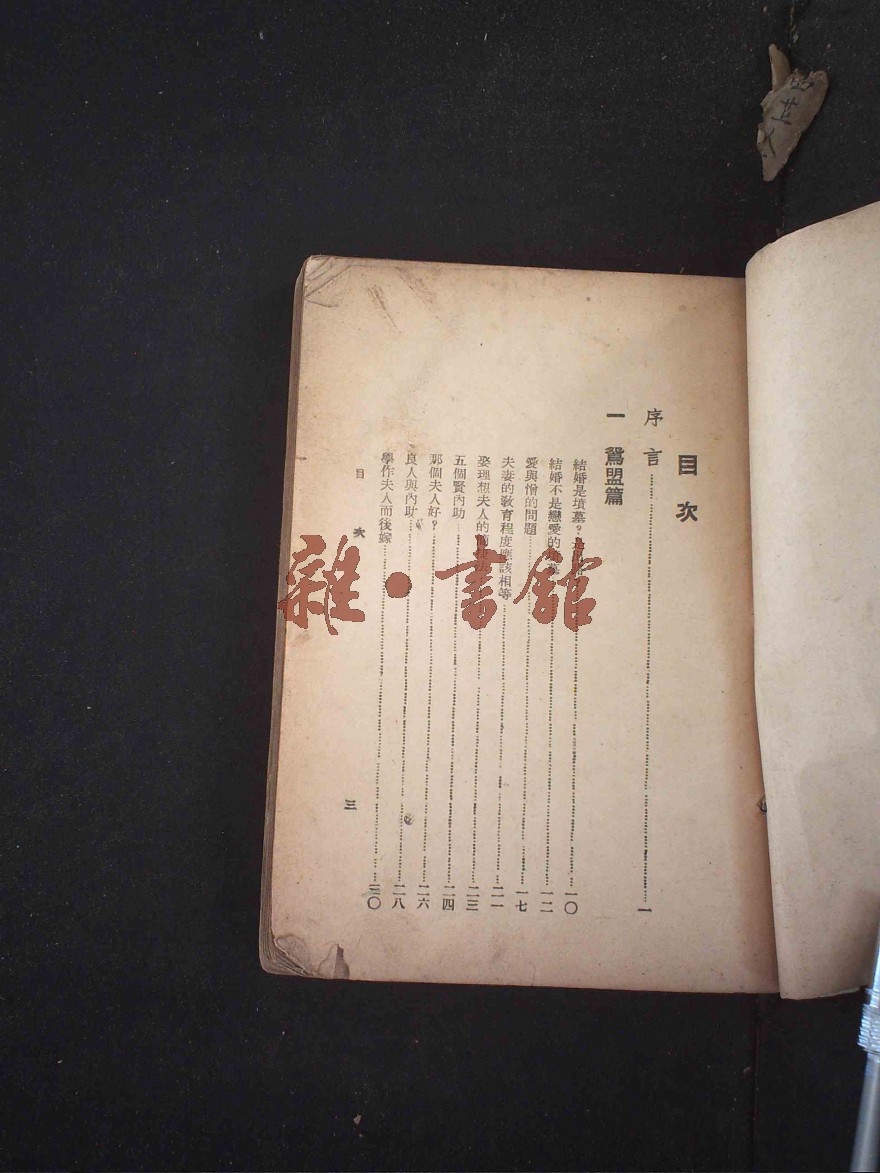 目次
序言 一
一 鴛盟篇
結婚是墳墓？是 一〇
結婚不是戀愛的墳墓 一二
愛與憎的問題 一七
夫妻的教育程度應該相等 二一
娶理想夫人的 二三
五個賢內助 二四
那個夫人好？ 二六
良人與內助 二八
學作夫人而後嫁 三〇
目次
三
雜·書館